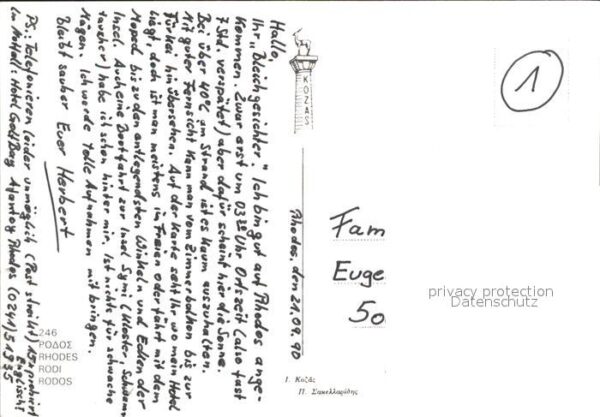 Hallo,
Ihr "Bleichgesichter." Ich bin gut auf Rhodos ange-
kommen. Zwar erst um 03³⁰ Uhr Ortszeit (also fast
7 Std. verspätet) aber dafür scheint hier die Sonne.
Bei über 40°C am Strand ist es kaum auszuhalten.
Mit guter Fernsicht kann man vom Zimmerbalkon bis zur
Türkei hin übersehen. Auf der Karte seht Ihr wo mein Hotel
liegt, doch ist man meistens im Freien oder fährt mit dem
Moped bis zu den entlegendsten Winkeln und Ecken der
Insel. Auch eine Bootfahrt zur Insel Symi (Kloster, Schwamm
taucher) habe ich schon hinter mir. Ist nichts für schwache
Mägen. Ich werde tolle Aufnahmen mit bringen.
Bleibt sauber Euer Herbert
PS.: Telefonieren leider unmöglich (Post streikt)
im Notfall: Hotel Golf Bay Rhodos (0241) 51935
Englisch!
246
ΡΟΔΟΣ
RHODES
RODI
RODOS
KOZAS
Rhodos, den 21.09.90
1
Fam
Euge
50
privacy protection
Datenschutz
Ι. Κοζάς
Π. Σακελλαρίδης